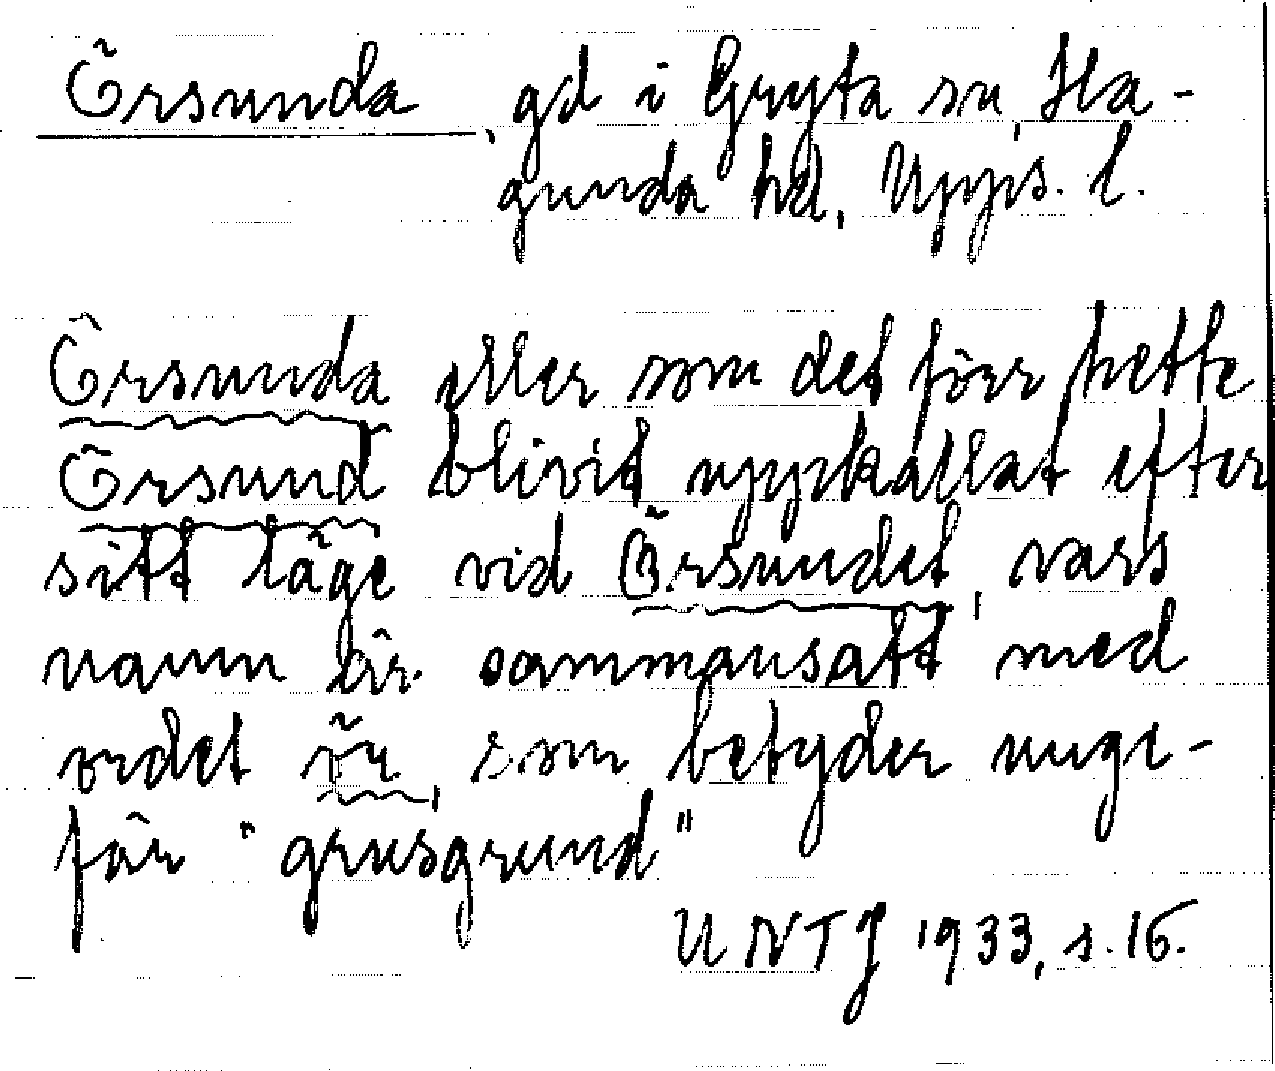 Örsunda, gd i Gryta sn, Ha-
gunda hd, Upps. l.
Örsunda eller som det förr hette
Örsund blivit uppkallat efter
sitt läge vid Örsundet, vars
namn är sammansatt med
ordet ör, som betyder unge-
fär "grusgrund"
UNTJ 1933, s. 16.